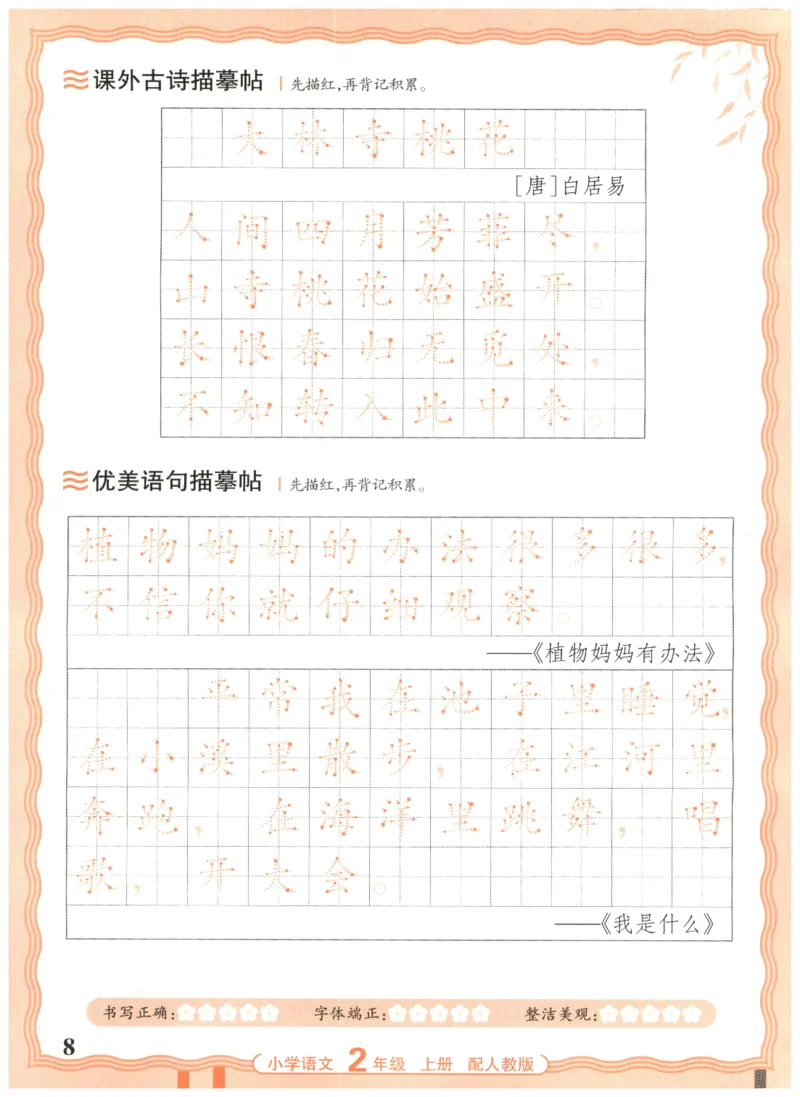 课外古诗描摹帖 | 先描红,再背记积累。
大林寺桃花
[唐]白居易
人间四月芳菲尽,
山寺桃花始盛开。
长恨春归无觅处,
不知转入此中来。
优美语句描摹帖 | 先描红,再背记积累。
植物妈妈的办法很多很多,
不信你就仔细观察。
——《植物妈妈有办法》
平常我在池子里睡觉,
在小溪里散步,在江河里
奔跑,在海洋里跳舞,唱
歌,开大会。
——《我是什么》
书写正确: 字体端正: 整洁美观:
8
小学语文 2年级 上册 配人教版